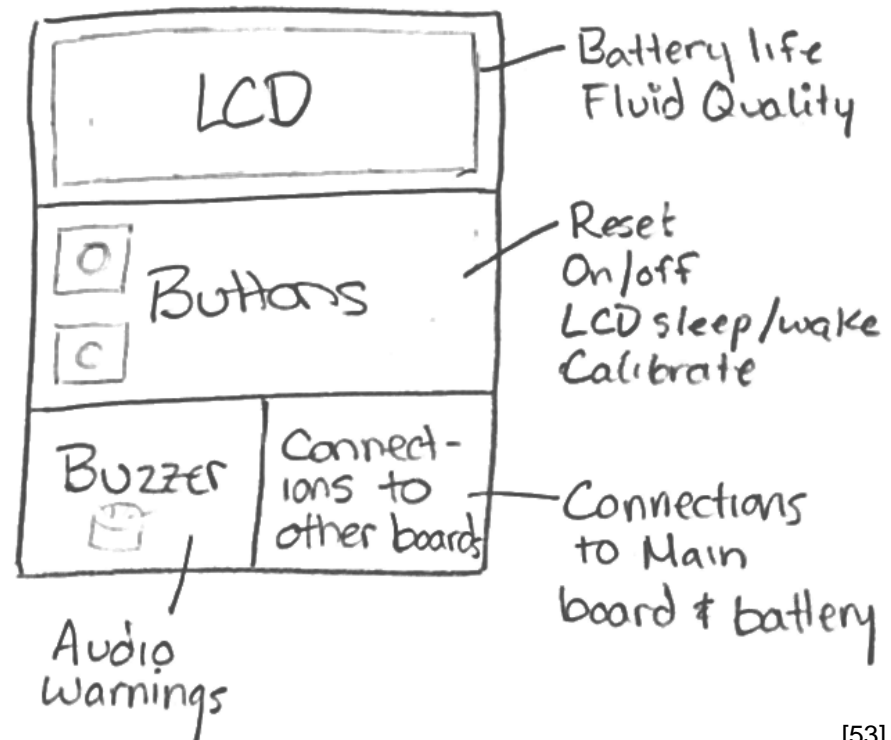 LCD
Battery life
Fluid Quality
Buttons
Reset
On/off
LCD sleep/wake
Calibrate
Buzzer
Connect-
ions to
other boards
Connections
to Main
board & battery
Audio
Warnings
[53]